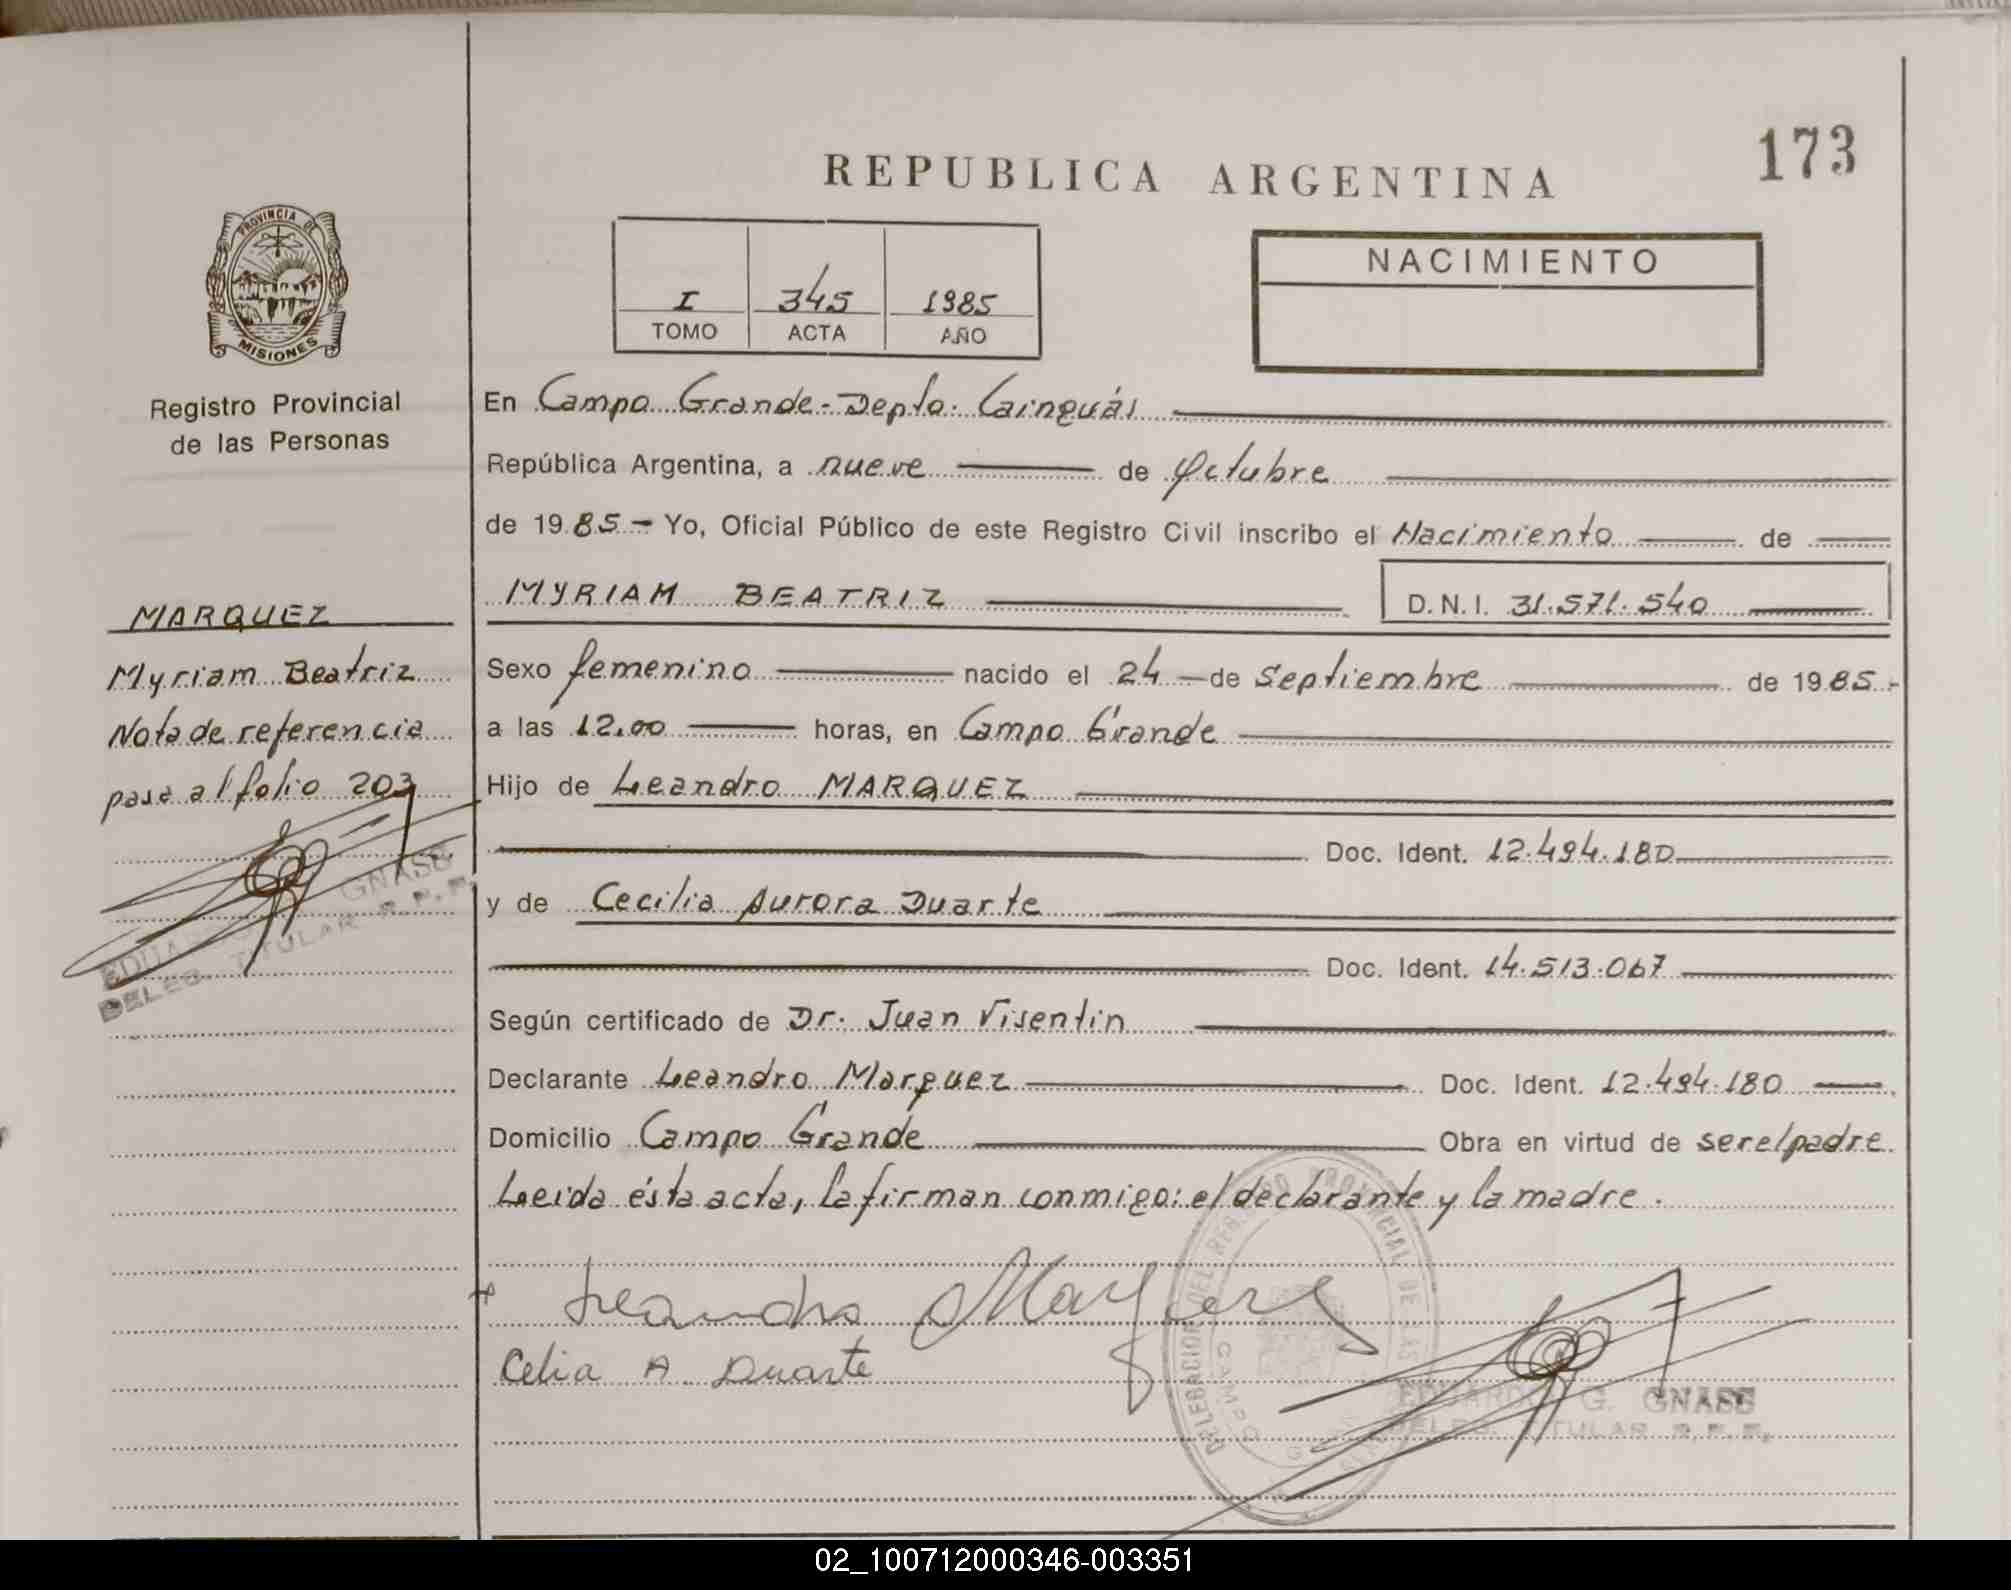 173
REPUBLICA ARGENTINA
PROVINCIA DE
MISIONES
Registro Provincial
de las Personas
I 345 1985
TOMO ACTA AÑO
NACIMIENTO
En Campo Grande - Depto. Cainguás
República Argentina, a nueve de Octubre
de 1985 - Yo, Oficial Público de este Registro Civil inscribo el Nacimiento de
MYRIAM BEATRIZ D.N.I. 31.571.540
MARQUEZ
Myriam Beatriz
Nota de referencia
pasa al folio 203
GNASS
DELEG. TITULAR R.P.P.
Sexo femenino nacido el 24 - de Septiembre de 1985.-
a las 12.00 horas, en Campo Grande
Hijo de Leandro MARQUEZ
Doc. Ident. 12.494.180
y de Cecilia Aurora Duarte
Doc. Ident. 14.513.067
Según certificado de Dr. Juan Visentin
Declarante Leandro Marquez Doc. Ident. 12.494.180
Domicilio Campo Grande Obra en virtud de ser el padre
Leida ésta acta, la firman conmigo: el declarante y la madre.
Leandro Marquez
Celia A. Duarte
DELEGACION DEL REGISTRO PROVINCIAL DE LAS
CAMPO
EDUARDO G. GNASS
DELEG. TITULAR R.P.P.
02_100712000346-003351